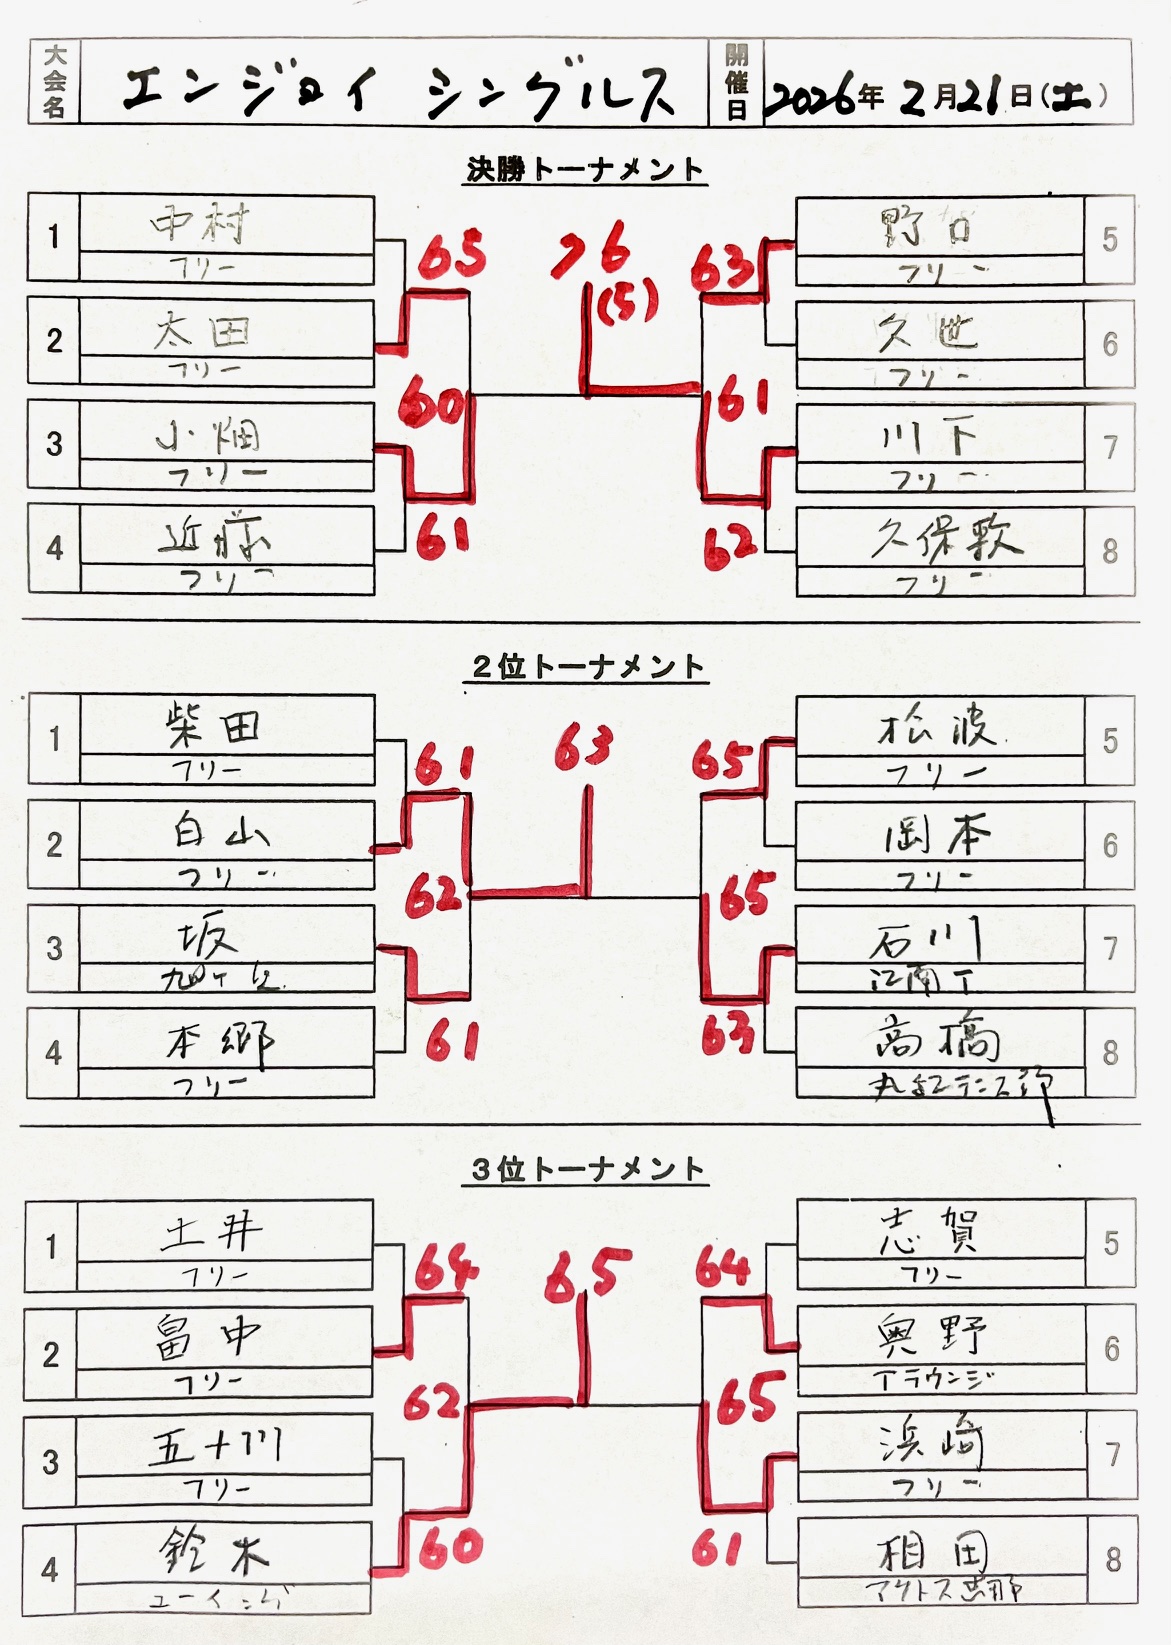 大会名 エンジョイ シングルス 開催日 2026年 2月21日(土)
決勝トーナメント
1 中村 フリー
2 太田 フリー
3 小畑 フリー
4 近藤 フリー
65
60
61
76
(5)
63
61
62
野口 フリー 5
久世 フリー 6
川下 フリー 7
久保敷 フリー 8
2位トーナメント
1 柴田 フリー
2 白山 フリー
3 坂
4 本郷 フリー
61
62
61
63
65
65
63
松波 フリー 5
岡本 フリー 6
石川 江南T 7
高橋 8
3位トーナメント
1 土井 フリー
2 畠中 フリー
3 五十川 フリー
4 鈴木 ユーイング
64
62
60
65
64
65
61
志賀 フリー 5
奥野 Tラウンジ 6
浜崎 フリー 7
相田 8